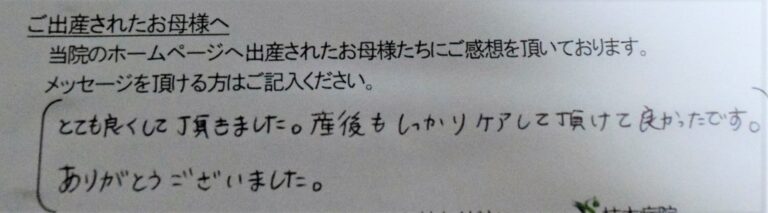 ご出産されたお母様へ
当院のホームページへ出産されたお母様たちにご感想を頂いております。
メッセージを頂ける方はご記入ください。
とても良くして頂きました。産後もしっかりケアして頂けて良かったです。
ありがとうございました。